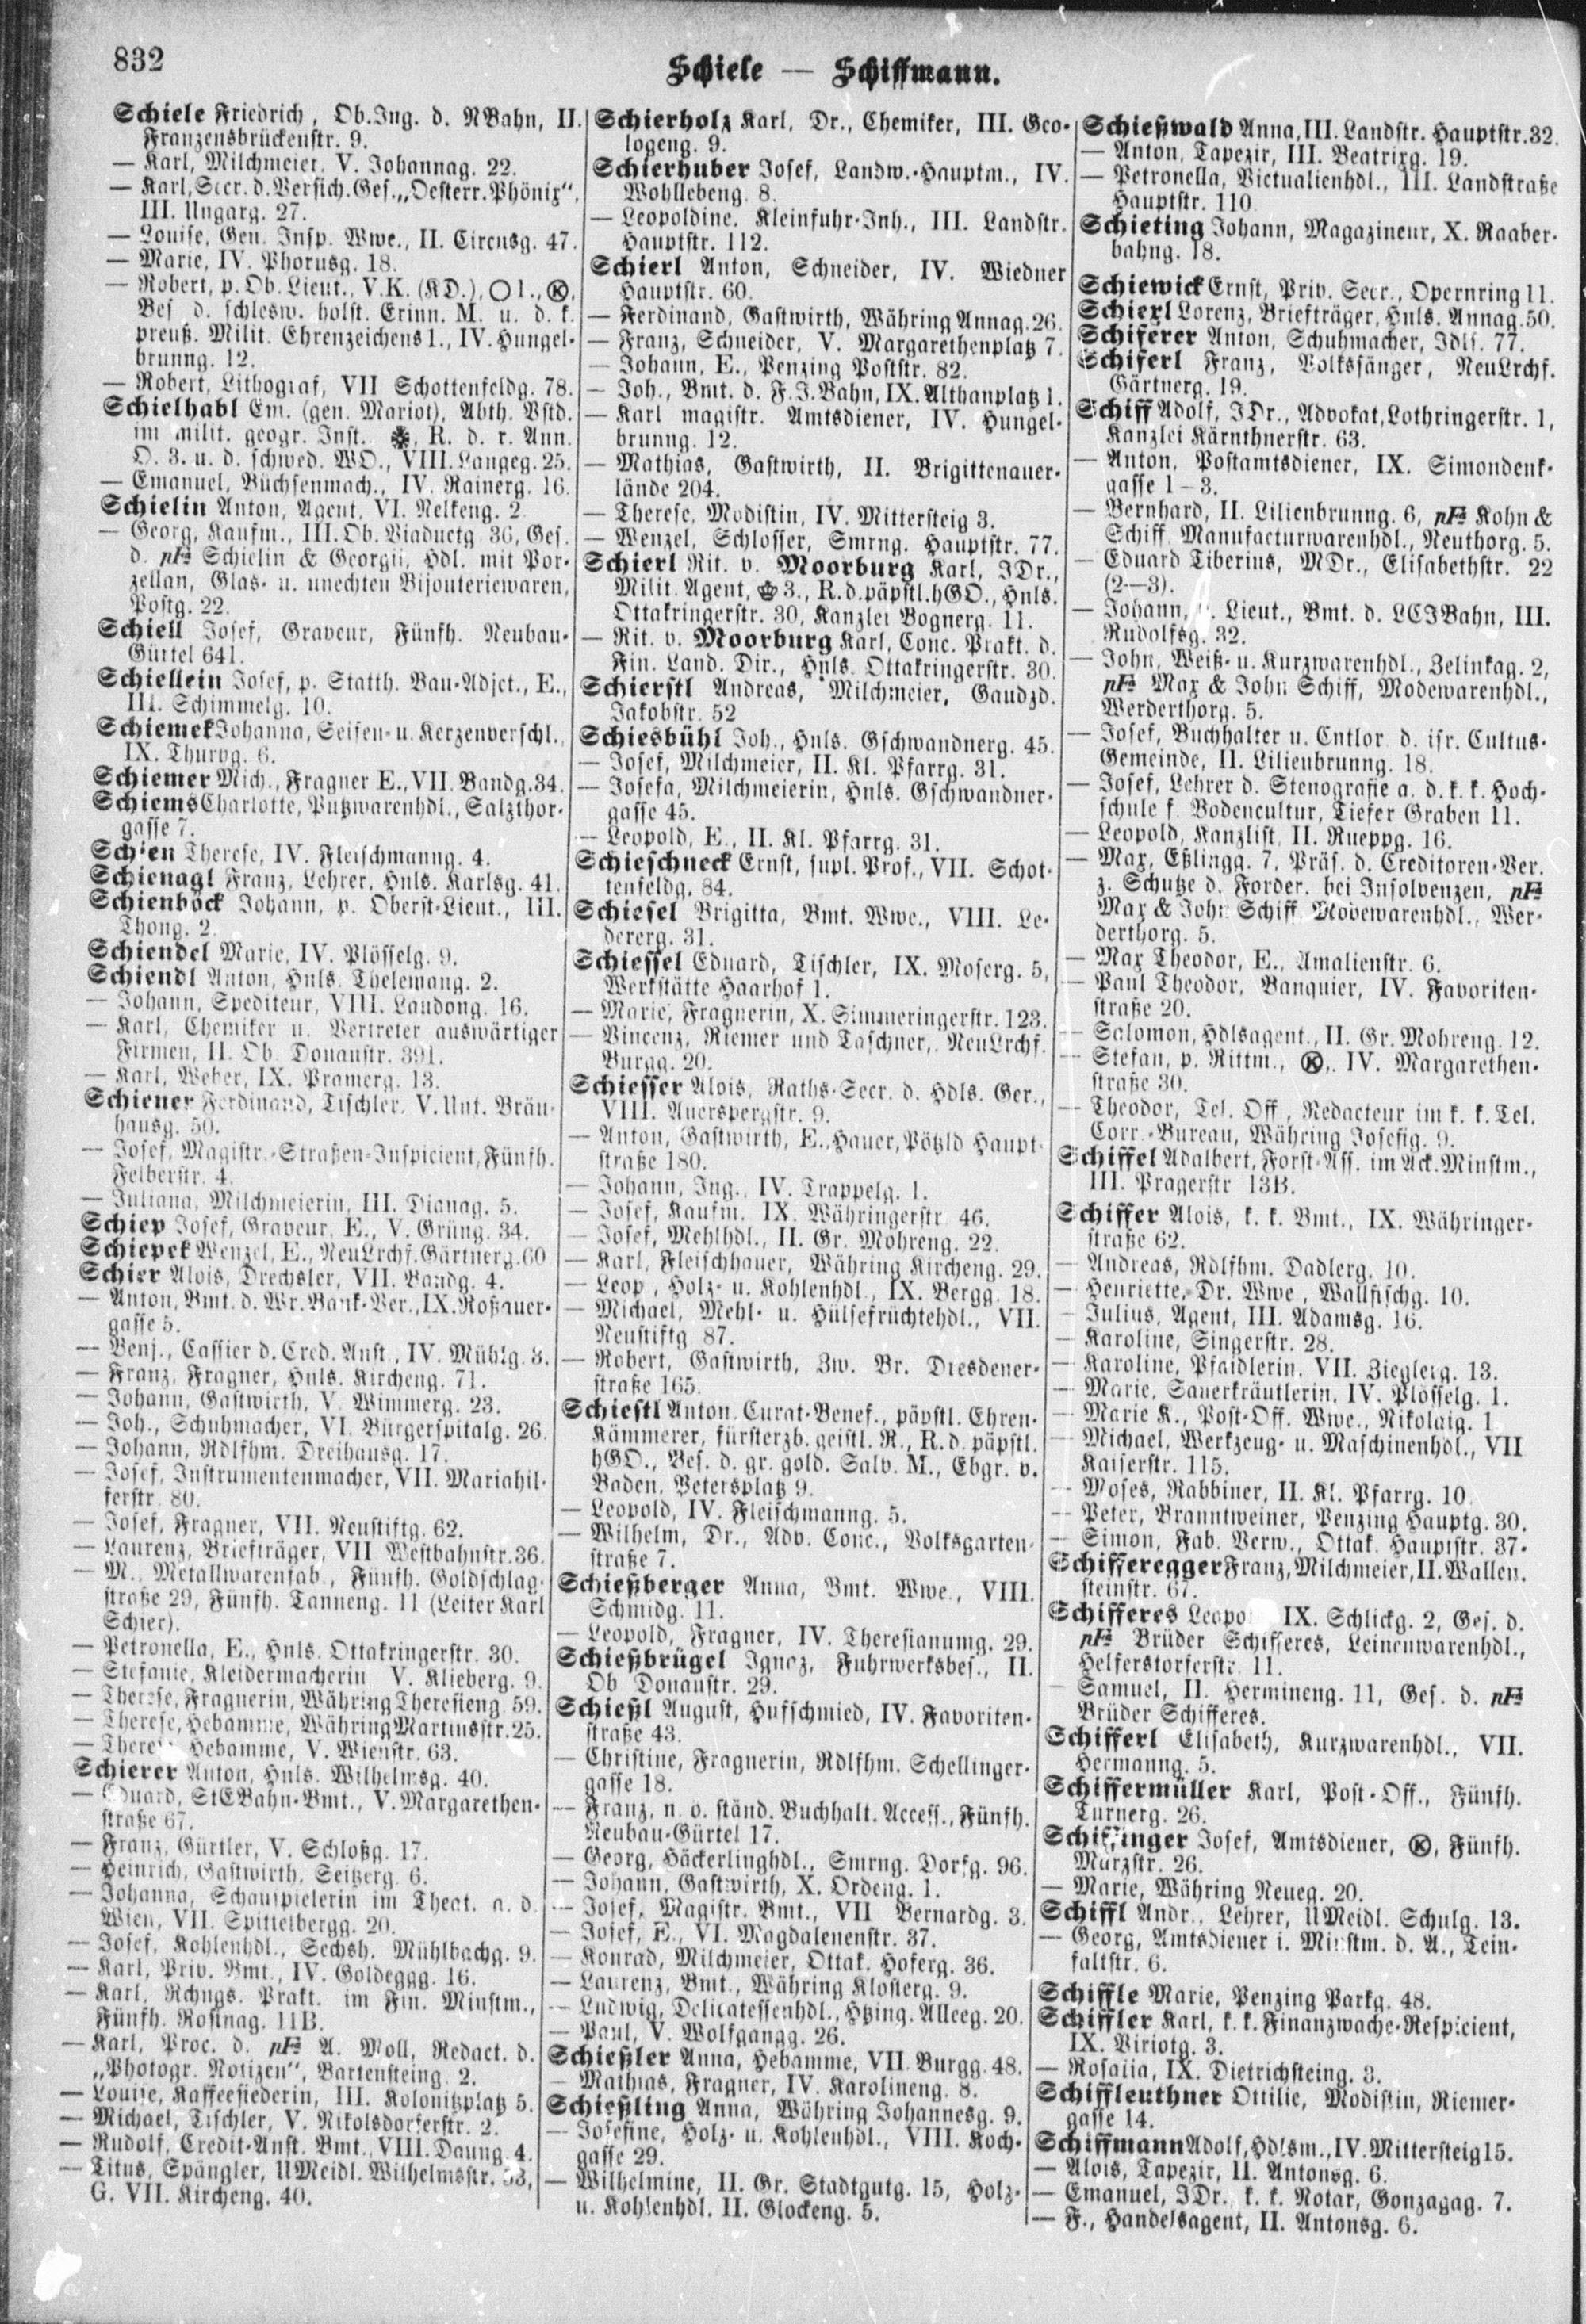 832
Schiele — Schiffmann.
Schiele Friedrich, Ob.Ing. d. NBahn, II.
Franzensbrückenstr. 9.
— Karl, Milchmeier, V. Johannag. 22.
— Karl, Secr. d. Versich. Ges. „Oesterr. Phönix“,
III. Ungarg. 27.
— Louise, Gen. Insp. Wwe., II. Circusg. 47.
— Marie, IV. Phorusg. 18.
— Robert, p. Ob. Lieut., V.K. (KD.), ◯1., Ⓚ,
Bes d. schlesw. holst. Erinn. M. u. d. k.
preuß. Milit. Ehrenzeichens 1., IV. Hungel-
brunng. 12.
— Robert, Lithograf, VII Schottenfeldg. 78.
Schielhabl Em. (gen. Mariot), Abth. Vstd.
im milit. geogr. Inst. , R. d. r. Ann.
O. 3. u. d. schwed. WO., VIII. Langeg. 25.
— Emanuel, Büchsenmach., IV. Rainerg. 16.
Schielin Anton, Agent, VI. Nelkeng. 2
— Georg, Kaufm., III. Ob. Viaductg 36, Ges.
d. pFa Schielin & Georgii, Hdl. mit Por-
zellan, Glas- u. unechten Bijouteriewaren,
Postg. 22.
Schiell Josef, Graveur, Fünfh. Neubau-
Gürtel 641.
Schiellein Josef, p. Statth. Bau-Adjct., E.,
III. Schimmelg. 10.
Schiemek Johanna, Seifen- u. Kerzenverschl.,
IX. Thuryg. 6.
Schiemer Mich., Fragner E., VII. Bandg. 34.
Schiems Charlotte, Putzwarenhdl., Salzthor-
gasse 7.
Schien Therese, IV. Fleischmanng. 4.
Schienagl Franz, Lehrer, Hnls. Karlsg. 41.
Schienböck Johann, p. Oberst-Lieut., III.
Thong. 2.
Schiendel Marie, IV. Plösselg. 9.
Schiendl Anton, Hnls. Thelemang. 2.
— Johann, Spediteur, VIII. Laudong. 16.
— Karl, Chemiker u. Vertreter auswärtiger
Firmen, II. Ob. Donaustr. 391.
— Karl, Weber, IX. Pramerg. 13.
Schiener Ferdinand, Tischler, V. Unt. Bräu-
hausg. 50.
— Josef, Magistr.-Straßen-Inspicient, Fünfh.
Felberstr. 4.
— Juliana, Milchmeierin, III. Dianag. 5.
Schiep Josef, Graveur, E., V. Grüng. 34.
Schiepek Wenzel, E., NeuLrchf. Gärtnerg. 60
Schier Alois, Drechsler, VII. Bandg. 4.
— Anton, Bmt. d. Wr. Bank-Ver., IX. Roßauer-
gasse 5.
— Benj., Cassier d. Cred. Anst., IV. Mühlg. 3.
— Franz, Fragner, Hnls. Kircheng. 71.
— Johann, Gastwirth, V. Wimmerg. 23.
— Joh., Schuhmacher, VI. Bürgerspitalg. 26.
— Johann, Rdlfhm. Dreihausg. 17.
— Josef, Instrumentenmacher, VII. Mariahil-
ferstr. 80.
— Josef, Fragner, VII. Neustiftg. 62.
— Laurenz, Briefträger, VII Westbahnstr. 36.
— M., Metallwarenfab., Fünfh. Goldschlag-
straße 29, Fünfh. Tanneng. 11 (Leiter Karl
Schier).
— Petronella, E., Hnls. Ottakringerstr. 30.
— Stefanie, Kleidermacherin V. Klieberg. 9.
— Therese, Fragnerin, Währing Theresieng 59.
— Therese, Hebamme, Währing Martinsstr. 25.
— Hebamme, V. Wienstr. 63.
Schierer Anton, Hnls. Wilhelmsg. 40.
— Eduard, StEBahn-Bmt., V. Margarethen-
straße 67.
— Franz, Gürtler, V. Schloßg. 17.
— Heinrich, Gastwirth, Seitzerg. 6.
— Johanna, Schauspielerin im Theat. a. d.
Wien, VII. Spittelbergg. 20.
— Josef, Kohlenhdl., Sechsh. Mühlbachg. 9.
— Karl, Priv. Bmt., IV. Goldeggg. 16.
— Karl, Rchngs. Prakt. im Fin. Minstm.,
Fünfh. Rosinag. 11B.
— Karl, Proc. d. pFa A. Moll, Redact. d.
„Photogr. Notizen“, Bartensteing. 2.
— Louise, Kaffeesiederin, III. Kolonitzplatz 5.
— Michael, Tischler, V. Nikolsdorferstr. 2.
— Rudolf, Credit-Anst. Bmt., VIII. Daung. 4.
— Titus, Spängler, UMeidl. Wilhelmsstr.
G. VII. Kircheng. 40.
Schierholz Karl, Dr., Chemiker, III. Geo-
logeng. 9.
Schierhuber Josef, Landw.-Hauptm., IV.
Wohllebeng. 8.
— Leopoldine, Kleinfuhr-Inh., III. Landstr.
Hauptstr. 112.
Schierl Anton, Schneider, IV. Wiedner
Hauptstr. 60.
— Ferdinand, Gastwirth, Währing Annag. 26.
— Franz, Schneider, V. Margarethenplatz 7.
— Johann, E., Penzing Poststr. 82.
— Joh., Bmt. d. F. J. Bahn, IX. Althanplatz 1.
— Karl magistr. Amtsdiener, IV. Hungel-
brunng. 12.
— Mathias, Gastwirth, II. Brigittenauer-
lände 204.
— Therese, Modistin, IV. Mittersteig 3.
— Wenzel, Schlosser, Smrng. Hauptstr. 77.
Schierl Rit. v. Moorburg Karl, JDr.,
Milit. Agent, ♔3., R. d. päpstl. hGO., Hnls.
Ottakringerstr. 30, Kanzlei Bognerg. 11.
— Rit. v. Moorburg Karl, Conc. Prakt. d.
Fin. Land. Dir., Hnls. Ottakringerstr. 30.
Schierstl Andreas, Milchmeier, Gaudzd.
Jakobstr. 52
Schiesbühl Joh., Hnls. Gschwandnerg. 45.
— Josef, Milchmeier, II. Kl. Pfarrg. 31.
— Josefa, Milchmeierin, Hnls. Gschwandner-
gasse 45.
— Leopold, E., II. Kl. Pfarrg. 31.
Schieschneck Ernst, supl. Prof., VII. Schot-
tenfeldg. 84.
Schiesel Brigitta, Bmt. Wwe., VIII. Le-
dererg. 31.
Schiessel Eduard, Tischler, IX. Moserg. 5,
Werkstätte Haarhof 1.
— Marie, Fragnerin, X. Simmeringerstr. 123.
— Vincenz, Riemer und Taschner, NeuLrchf.
Burgg. 20.
Schiesser Alois, Raths-Secr. d. Hdls. Ger.,
VIII. Auerspergstr. 9.
— Anton, Gastwirth, E., Hauer, Pötzld Haupt-
straße 180.
— Johann, Ing., IV. Trappelg. 1.
— Josef, Kaufm. IX. Währingerstr. 46.
— Josef, Mehlhdl., II. Gr. Mohreng. 22.
— Karl, Fleischhauer, Währing Kircheng. 29.
— Leop., Holz- u. Kohlenhdl., IX. Bergg. 18.
— Michael, Mehl- u. Hülsefrüchtehdl., VII.
Neustiftg 87.
— Robert, Gastwirth, Zw. Br. Dresdener-
straße 165.
Schiestl Anton, Curat-Benef., päpstl. Ehren-
Kämmerer, fürsterzb. geistl. R., R. d. päpstl.
hGO., Bes. d. gr. gold. Salv. M., Ebgr. v.
Baden, Petersplatz 9.
— Leopold, IV. Fleischmanng. 5.
— Wilhelm, Dr., Adv. Conc., Volksgarten-
straße 7.
Schießberger Anna, Bmt. Wwe., VIII.
Schmidg. 11.
— Leopold, Fragner, IV. Theresianumg. 29.
Schießbrügel Ignaz, Fuhrwerksbes., II.
Ob Donaustr. 29.
Schießl August, Hufschmied, IV. Favoriten-
straße 43.
— Christine, Fragnerin, Rdlfhm. Schellinger-
gasse 18.
— Franz, n. ö. ständ. Buchhalt. Access., Fünfh.
Neubau-Gürtel 17.
— Georg, Häckerlinghdl., Smrng. Dorfg. 96.
— Johann, Gastwirth, X. Ordeng. 1.
— Josef, Magistr. Bmt., VII Bernardg. 3.
— Josef, E., VI. Magdalenenstr. 37.
— Konrad, Milchmeier, Ottak. Hoferg. 36.
— Laurenz, Bmt., Währing Klosterg. 9.
— Ludwig, Delicatessenhdl., Htzing. Alleeg. 20.
— Paul, V. Wolfgangg. 26.
Schießler Anna, Hebamme, VII. Burgg. 48.
— Mathias, Fragner, IV. Karolineng. 8.
Schießling Anna, Währing Johannesg. 9.
— Josefine, Holz- u. Kohlenhdl., VIII. Koch-
gasse 29.
— Wilhelmine, II. Gr. Stadtgutg. 15, Holz-
u. Kohlenhdl. II. Glockeng. 5.
Schießwald Anna, III. Landstr. Hauptstr. 32.
— Anton, Tapezir, III. Beatrixg. 19.
— Petronella, Victualienhdl., III. Landstraße
Hauptstr. 110
Schieting Johann, Magazineur, X. Raaber-
bahng. 18.
Schiewick Ernst, Priv. Secr., Opernring 11.
Schierl Lorenz, Briefträger, Hnls. Annag. 50.
Schiferer Anton, Schuhmacher, Jdlf. 77.
Schiferl Franz, Volkssänger, NeuLrchf.
Gärtnerg. 19.
Schiff Adolf, JDr., Advokat, Lothringerstr. 1,
Kanzlei Kärnthnerstr. 63.
— Anton, Postamtsdiener, IX. Simondenk-
gasse 1–3.
— Bernhard, II. Lilienbrunng. 6, pFa Kohn &
Schiff, Manufacturwarenhdl., Neuthorg. 5.
— Eduard Tiberius, MDr., Elisabethstr. 22
(2—3).
— Johann, Lieut., Bmt. d. LCJBahn, III.
Rudolfsg. 32.
— John, Weiß- u. Kurzwarenhdl., Zelinkag. 2,
pFa Max & John Schiff, Modewarenhdl.,
Werderthorg. 5.
— Josef, Buchhalter u. Cntlor. d. isr. Cultus-
Gemeinde, II. Lilienbrunng. 18.
— Josef, Lehrer d. Stenografie a. d. k. k. Hoch-
schule f. Bodencultur, Tiefer Graben 11.
— Leopold, Kanzlist, II. Rueppg. 16.
— Max, Eßlingg. 7, Präs. d. Creditoren-Ver.
z. Schutze d. Forder. bei Insolvenzen, pFa
Max & John Schiff Modewarenhdl., Wer-
derthorg. 5.
— Max Theodor, E., Amalienstr. 6.
— Paul Theodor, Banquier, IV. Favoriten-
straße 20.
— Salomon, Hdlsagent., II. Gr. Mohreng. 12.
— Stefan, p. Rittm., Ⓚ, IV. Margarethen-
straße 30.
— Theodor, Tel. Off., Redacteur im k. k. Tel.
Corr.-Bureau, Währing Josefig. 9.
Schiffel Adalbert, Forst-Ass. im Ack. Minstm.,
III. Pragerstr 13B.
Schiffer Alois, k. k. Bmt., IX. Währinger-
straße 62.
— Andreas, Rdlfhm. Dadlerg. 10.
— Henriette, Dr. Wwe, Wallfischg. 10.
— Julius, Agent, III. Adamsg. 16.
— Karoline, Singerstr. 28.
— Karoline, Pfaidlerin, VII. Zieglerg. 13.
— Marie, Sauerkräutlerin, IV. Plösselg. 1.
— Marie K., Post-Off. Wwe., Nikolaig. 1.
— Michael, Werkzeug- u. Maschinenhdl., VII
Kaiserstr. 115.
— Moses, Rabbiner, II. Kl. Pfarrg. 10.
— Peter, Branntweiner, Penzing Hauptg. 30.
— Simon, Fab. Verw., Ottak. Hauptstr. 37.
Schifferegger Franz, Milchmeier, II. Wallen-
steinstr. 67.
Schifferes IX. Schlickg. 2, Ges. d.
pFa Brüder Schifferes, Leinenwarenhdl.,
Helferstorferstr. 11.
— Samuel, II. Hermineng. 11, Ges. d. pFa
Brüder Schifferes.
Schifferl Elisabeth, Kurzwarenhdl., VII.
Hermanng. 5.
Schiffermüller Karl, Post-Off., Fünfh.
Turnerg. 26.
Schiffinger Josef, Amtsdiener, Ⓚ, Fünfh.
Märzstr. 26.
— Marie, Währing Neueg. 20.
Schiffl Andr., Lehrer, UMeidl. Schulg. 13.
— Georg, Amtsdiener i. Minstm. d. A., Tein-
faltstr. 6.
Schiffle Marie, Penzing Parkg. 48.
Schiffler Karl, k. k. Finanzwache-Respicient,
IX. Viriotg. 3.
— Rosalia, IX. Dietrichsteing. 3.
Schiffleuthner Ottilie, Modistin, Riemer-
gasse 14.
Schiffmann Adolf, Hdlsm., IV. Mittersteig 15.
— Alois, Tapezir, II. Antonsg. 6.
— Emanuel, JDr., k. k. Notar, Gonzagag. 7.
— F., Handelsagent, II. Antonsg. 6.